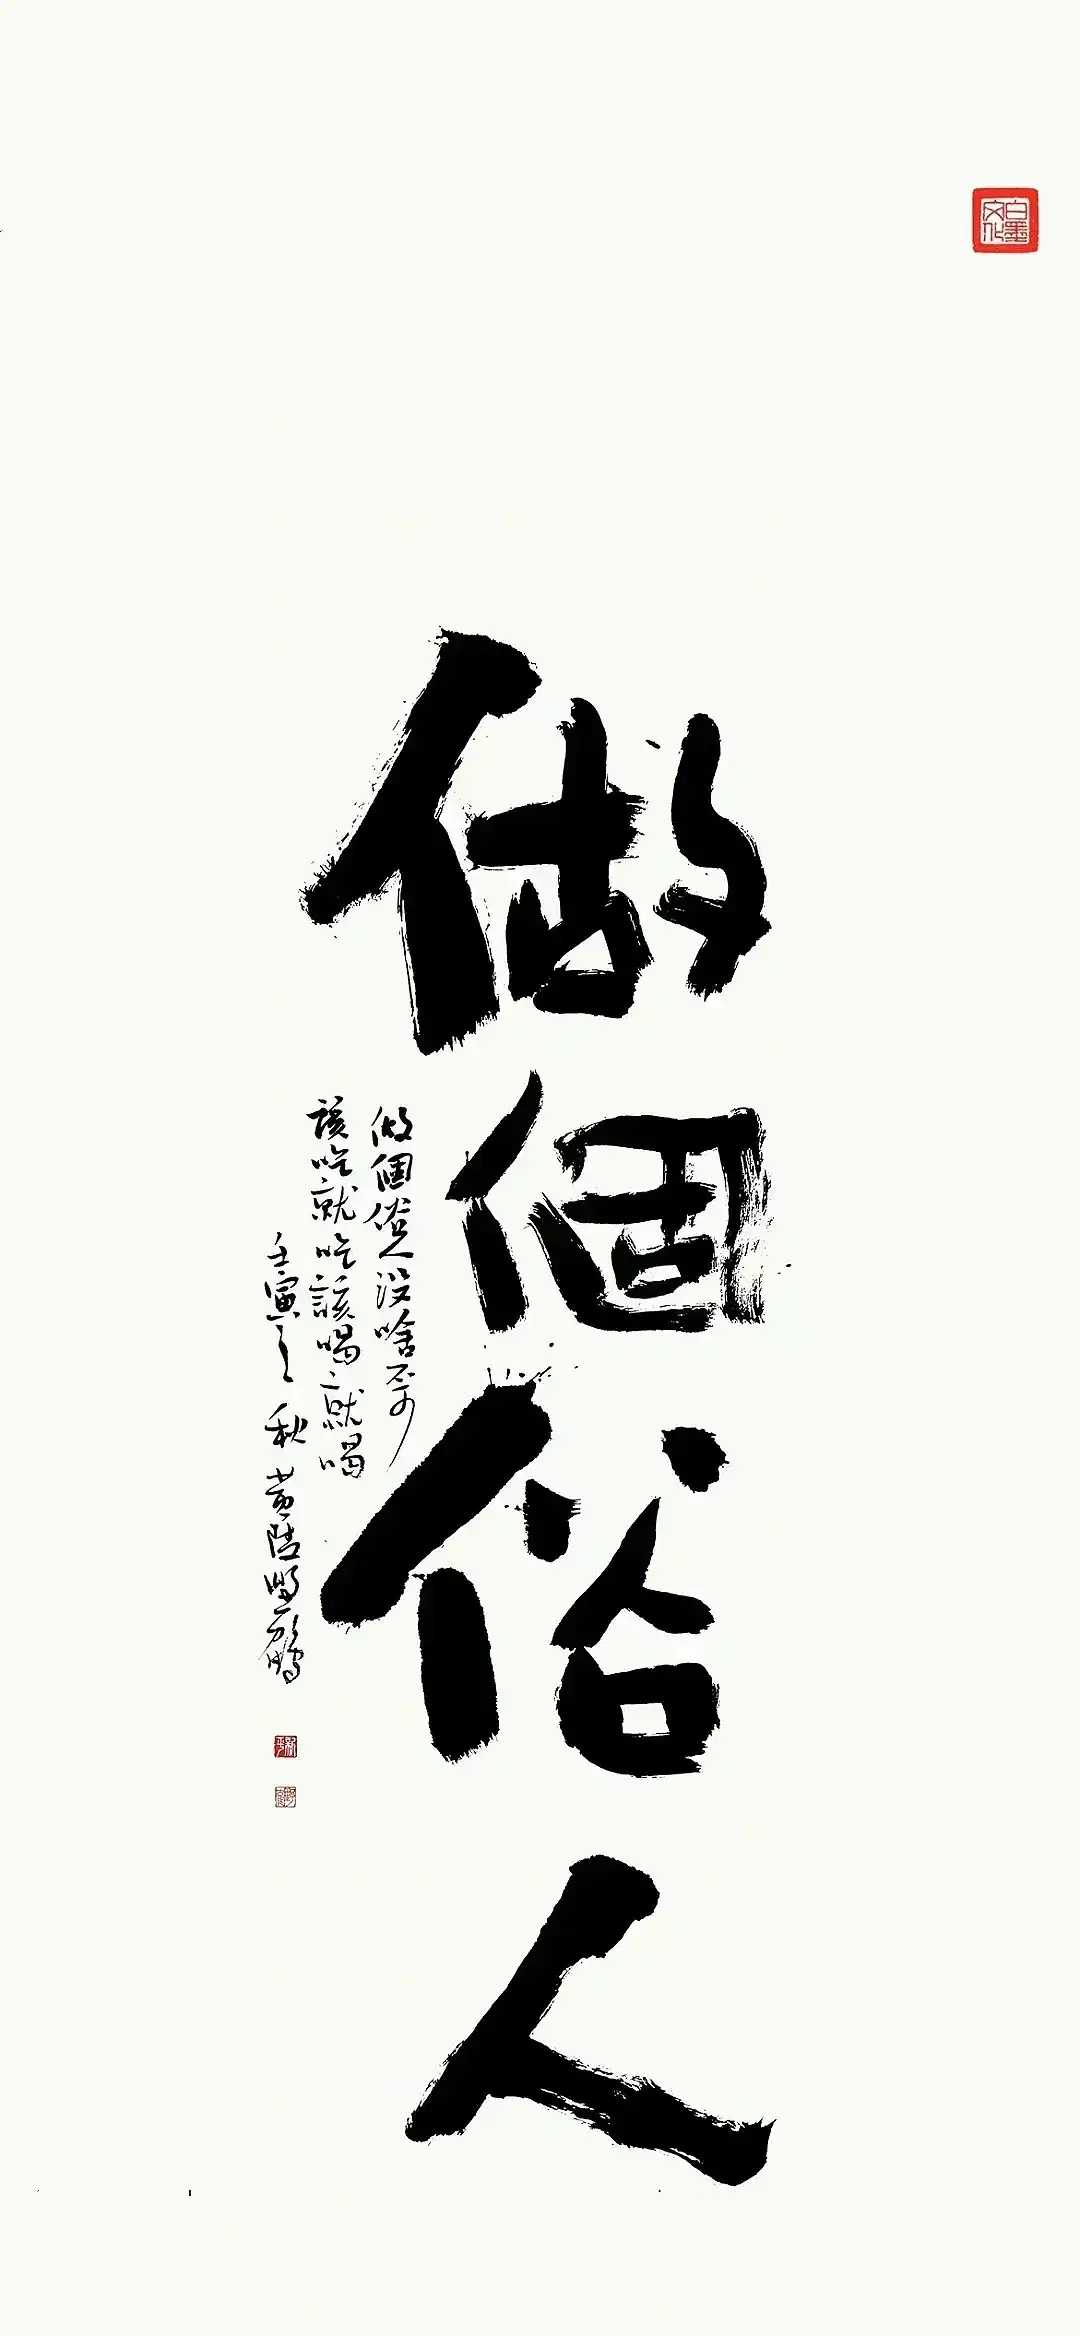 白墨文化
做個俗人
做個俗人没啥歹
該吃就吃該喝就喝
壬寅之秋 黄陆